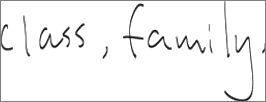 class, family.